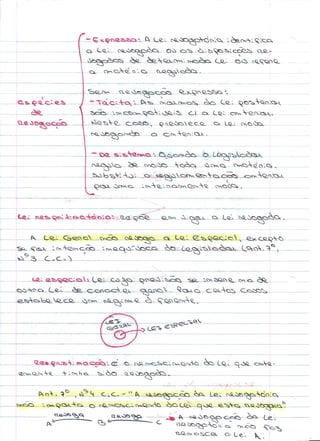 - Expressa: A Lei revogatória identifica
a Lei revogada ou as disposições re-
vogadas de determinada Lei ou refere
a matéria regulada.
Sem revogação expressa:
espécies
de
revogação
- Tácita: As normas da Lei posterior
são incompatíveis c/ a Lei anterior.
Neste caso, prevalece a Lei nova
revogando a anterior.
- De sistema: Quando o Legislador
regula de novo toda uma matéria.
Substitui a regulamentação anterior
por uma inteiramente nova.
Lei repristinatória: repõe em vigor a Lei revogada.
A Lei Geral não revoga a Lei especial, excepto
se for intenção inequívoca do Legislador (Art. 7º,
nº3 C.C.)
Lei especial: Lei cuja previsão se insere na de
outra Lei de caracter geral para certos casos
estabelece um regime diferente.
LEI
GERAL
LEI ESPECIAL
Repristinação: é o renascimento da Lei que ante-
riormente tinha sido revogada.
Art. 7º, nº4 C.C. - "A revogação da Lei revogatória
não importa o renascimento da Lei que esta revogara"
revoga revoga
A B C
A revogação da Lei
revogatória não faz
renascer a Lei A.